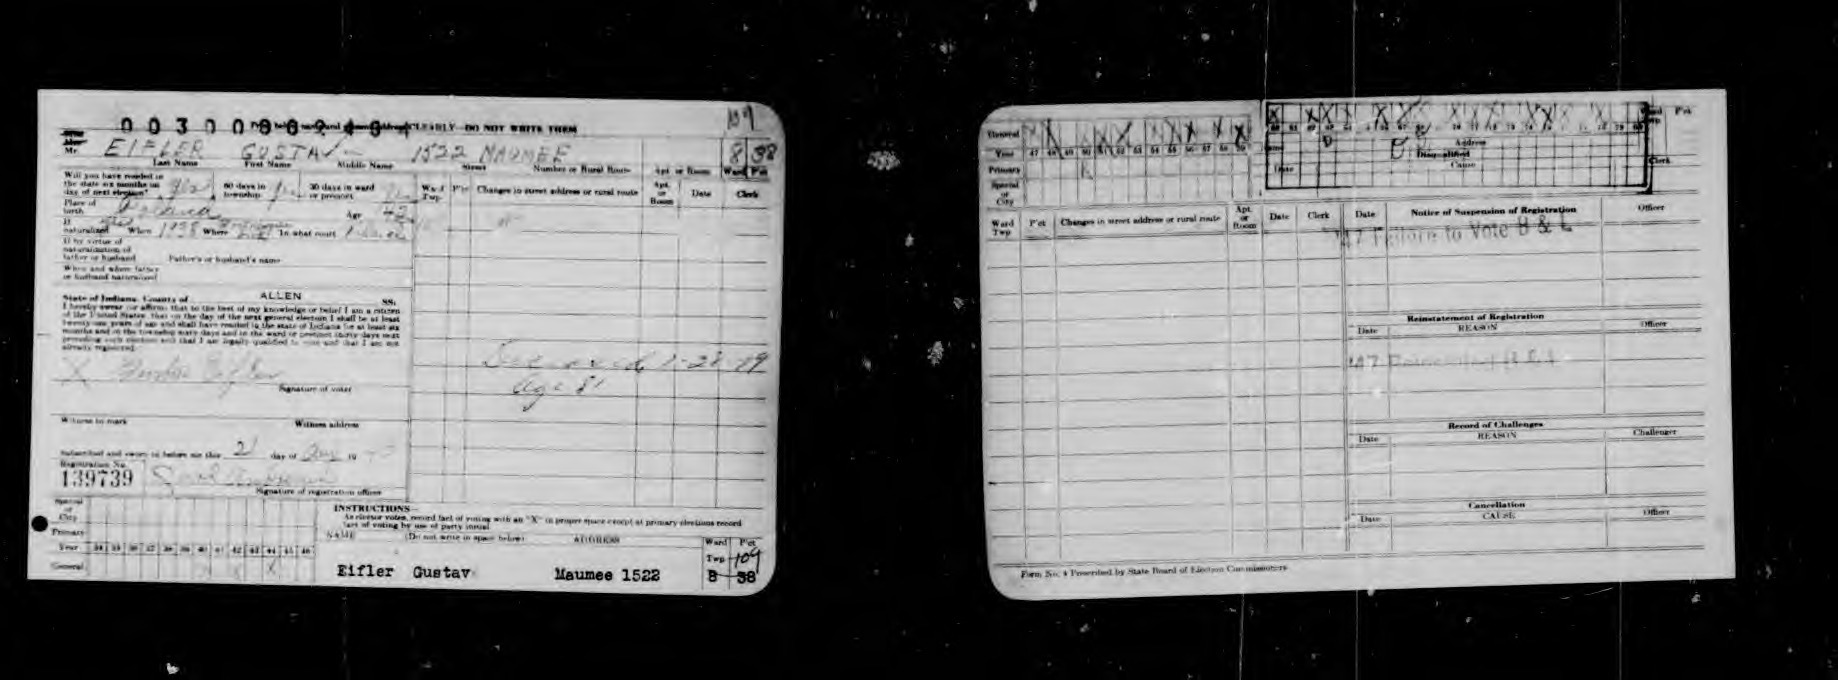 CLEARLY DO NOT WRITE THEM
109
Mr. EIFLER GUSTAV 1522 MAUMEE 8 38
Last Name First Name Middle Name Street Number or Rural Route Apt. or Room Ward P'ct
Will you have resided in
the state six months on
day of next election? Yes 60 days in township 30 days in ward or precinct
Ward Twp. P'ct Changes in street address or rural route Apt. or Room Date Clerk
Place of birth Age 42
If naturalized When 1938 Where In what court
If by virtue of
naturalization of
father or husband Father's or husband's name
When and where father
or husband naturalized
State of Indiana, County of ALLEN SS:
I hereby swear (or affirm) that to the best of my knowledge or belief I am a citizen
of the United States, that on the day of the next general election I shall be at least
twenty-one years of age and shall have resided in the state of Indiana for at least six
months and in the township sixty days and in the ward or precinct thirty days next
preceding such election and that I am legally qualified to vote and that I am not
already registered.
X Gustav Eifler
Signature of voter
Deceased 1-28-79
Age 81
Witness to mark Witness address
Subscribed and sworn to before me this 21 day of 19
Registration No.
139739
Signature of registration officer
Special or City
Primary
Year 34 35 36 37 38 39 40 41 42 43 44 45 46
General X
INSTRUCTIONS
As elector votes, record fact of voting with an "X" in proper space except at primary elections record
fact of voting by use of party initial
NAME (Do not write in space below) ADDRESS Ward Twp P'ct
109
Eifler Gustav Maumee 1522 8 38
General
Year 47 48 49 50 51 52 53 54 55 56 57 58 59
Primary
Special or City
Address
Disqualified
Date Cause
Ward Twp P'ct
Clerk
Ward Twp P'ct Changes in street address or rural route Apt. or Room Date Clerk
Date Notice of Suspension of Registration Officer
'47 Failure to Vote B & C
Reinstatement of Registration
Date REASON Officer
'47
Record of Challenges
Date REASON Challenger
Cancellation
Date CAUSE Officer
Form No. 4 Prescribed by State Board of Election Commissioners